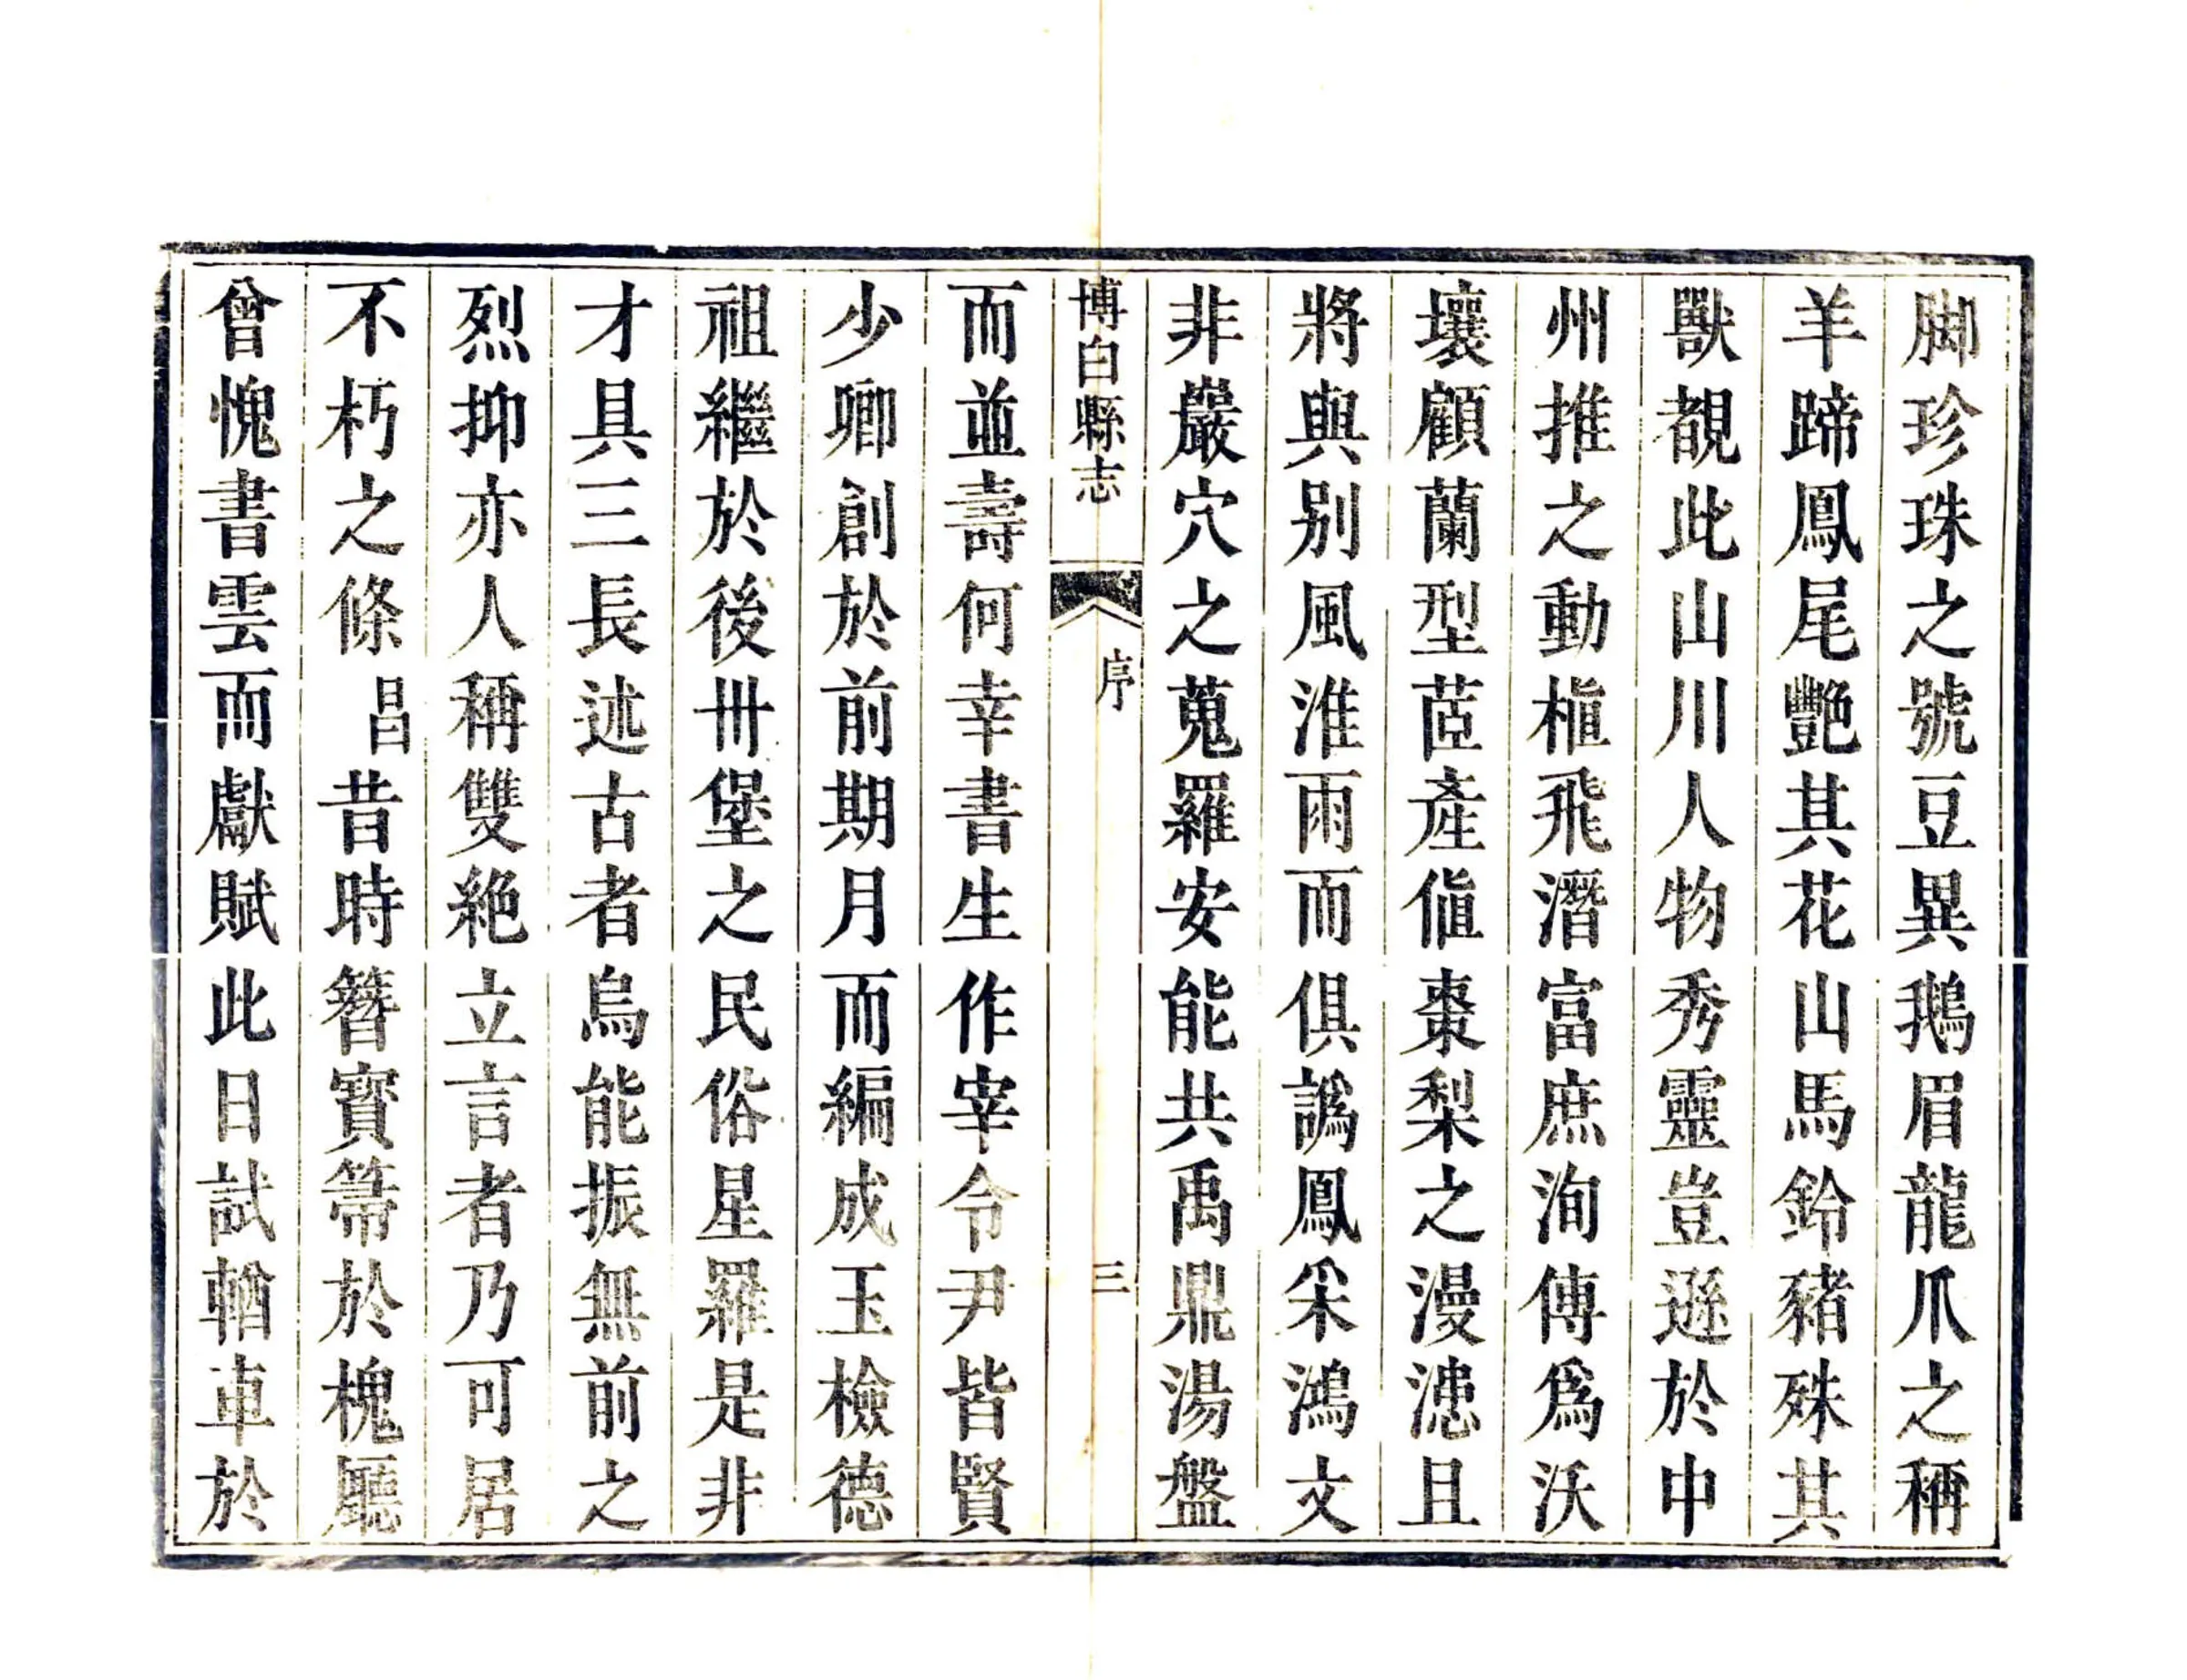 脚珍珠之號豆異鵝眉龍爪之稱
羊蹄鳳尾艷其花山馬鈴豬殊其
獸覩此山川人物秀靈豈遜於中
州推之動植飛潛富庶洵傳爲沃
壤顧蘭型茝產値棗梨之漫漶且
將與别風淮雨而俱譌鳳采鴻文
非巖穴之蒐羅安能共禹鼎湯盤
博白縣志
序
三
而並壽何幸書生作宰令尹皆賢
少卿創於前期月而編成玉檢德
祖繼於後卅堡之民俗星羅是非
才具三長述古者烏能振無前之
烈抑亦人稱雙絶立言者乃可居
不朽之條昌昔時簪寳箒於槐廳
曾愧書雲而獻賦此日試輶車於